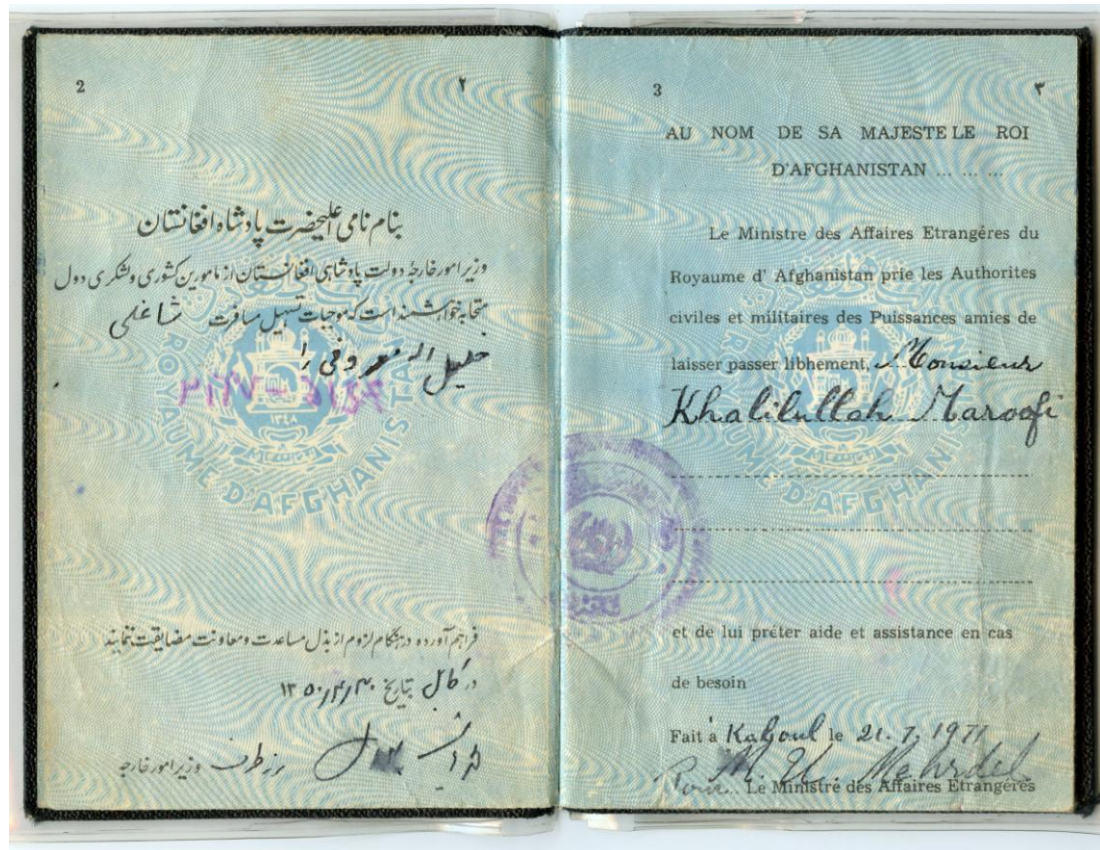 2 ۲
بنام نامی اعلیحضرت پادشاه افغانستان
وزیر امور خارجهٔ دولت پادشاهی افغانستان از مامورین کشوری و لشکری دول
متحابه خواهشمند است که موجبات تسهیل مسافرت ښاغلی
خلیل الله معروفی را
ROYAUME D'AFGHANISTAN
١٣٤٨
فراهم آورده در هنگام لزوم از بذل مساعدت و معاونت مضایقت ننمایند
در کابل بتاریخ ۱۳۵۰/۴/۳۰
از طرف وزیر امور خارجه
3 ۳
AU NOM DE SA MAJESTE LE ROI
D'AFGHANISTAN ... ... ...
Le Ministre des Affaires Etrangéres du
Royaume d' Afghanistan prie les Authorites
civiles et militaires des Puissances amies de
laisser passer libhement, Monsieur
Khalilullah Maroofi
ROYAUME D'AFGHANISTAN
et de lui préter aide et assistance en cas
de besoin
Fait à Kaboul le 21. 7. 1971
Pour M. U. Mehrdel
Le Ministre des Affaires Etrangéres